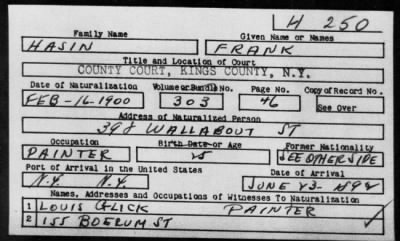 H 250
Family Name Given Name or Names
HASIN FRANK
Title and Location of Court
COUNTY COURT, KINGS COUNTY, N.Y.
Date of Naturalization Volume or Bundle No. Page No. Copy of Record No.
FEB-16-1900 303 46 See Over
Address of Naturalized Person
398 WALLABOUT ST
Occupation Birth Date or Age Former Nationality
PAINTER 25 SEE OTHER SIDE
Port of Arrival in the United States Date of Arrival
N.Y. N.Y. JUNE 23-1892
Names, Addresses and Occupations of Witnesses To Naturalization
1 LOUIS GLICK PAINTER
2 155 BOERUM ST